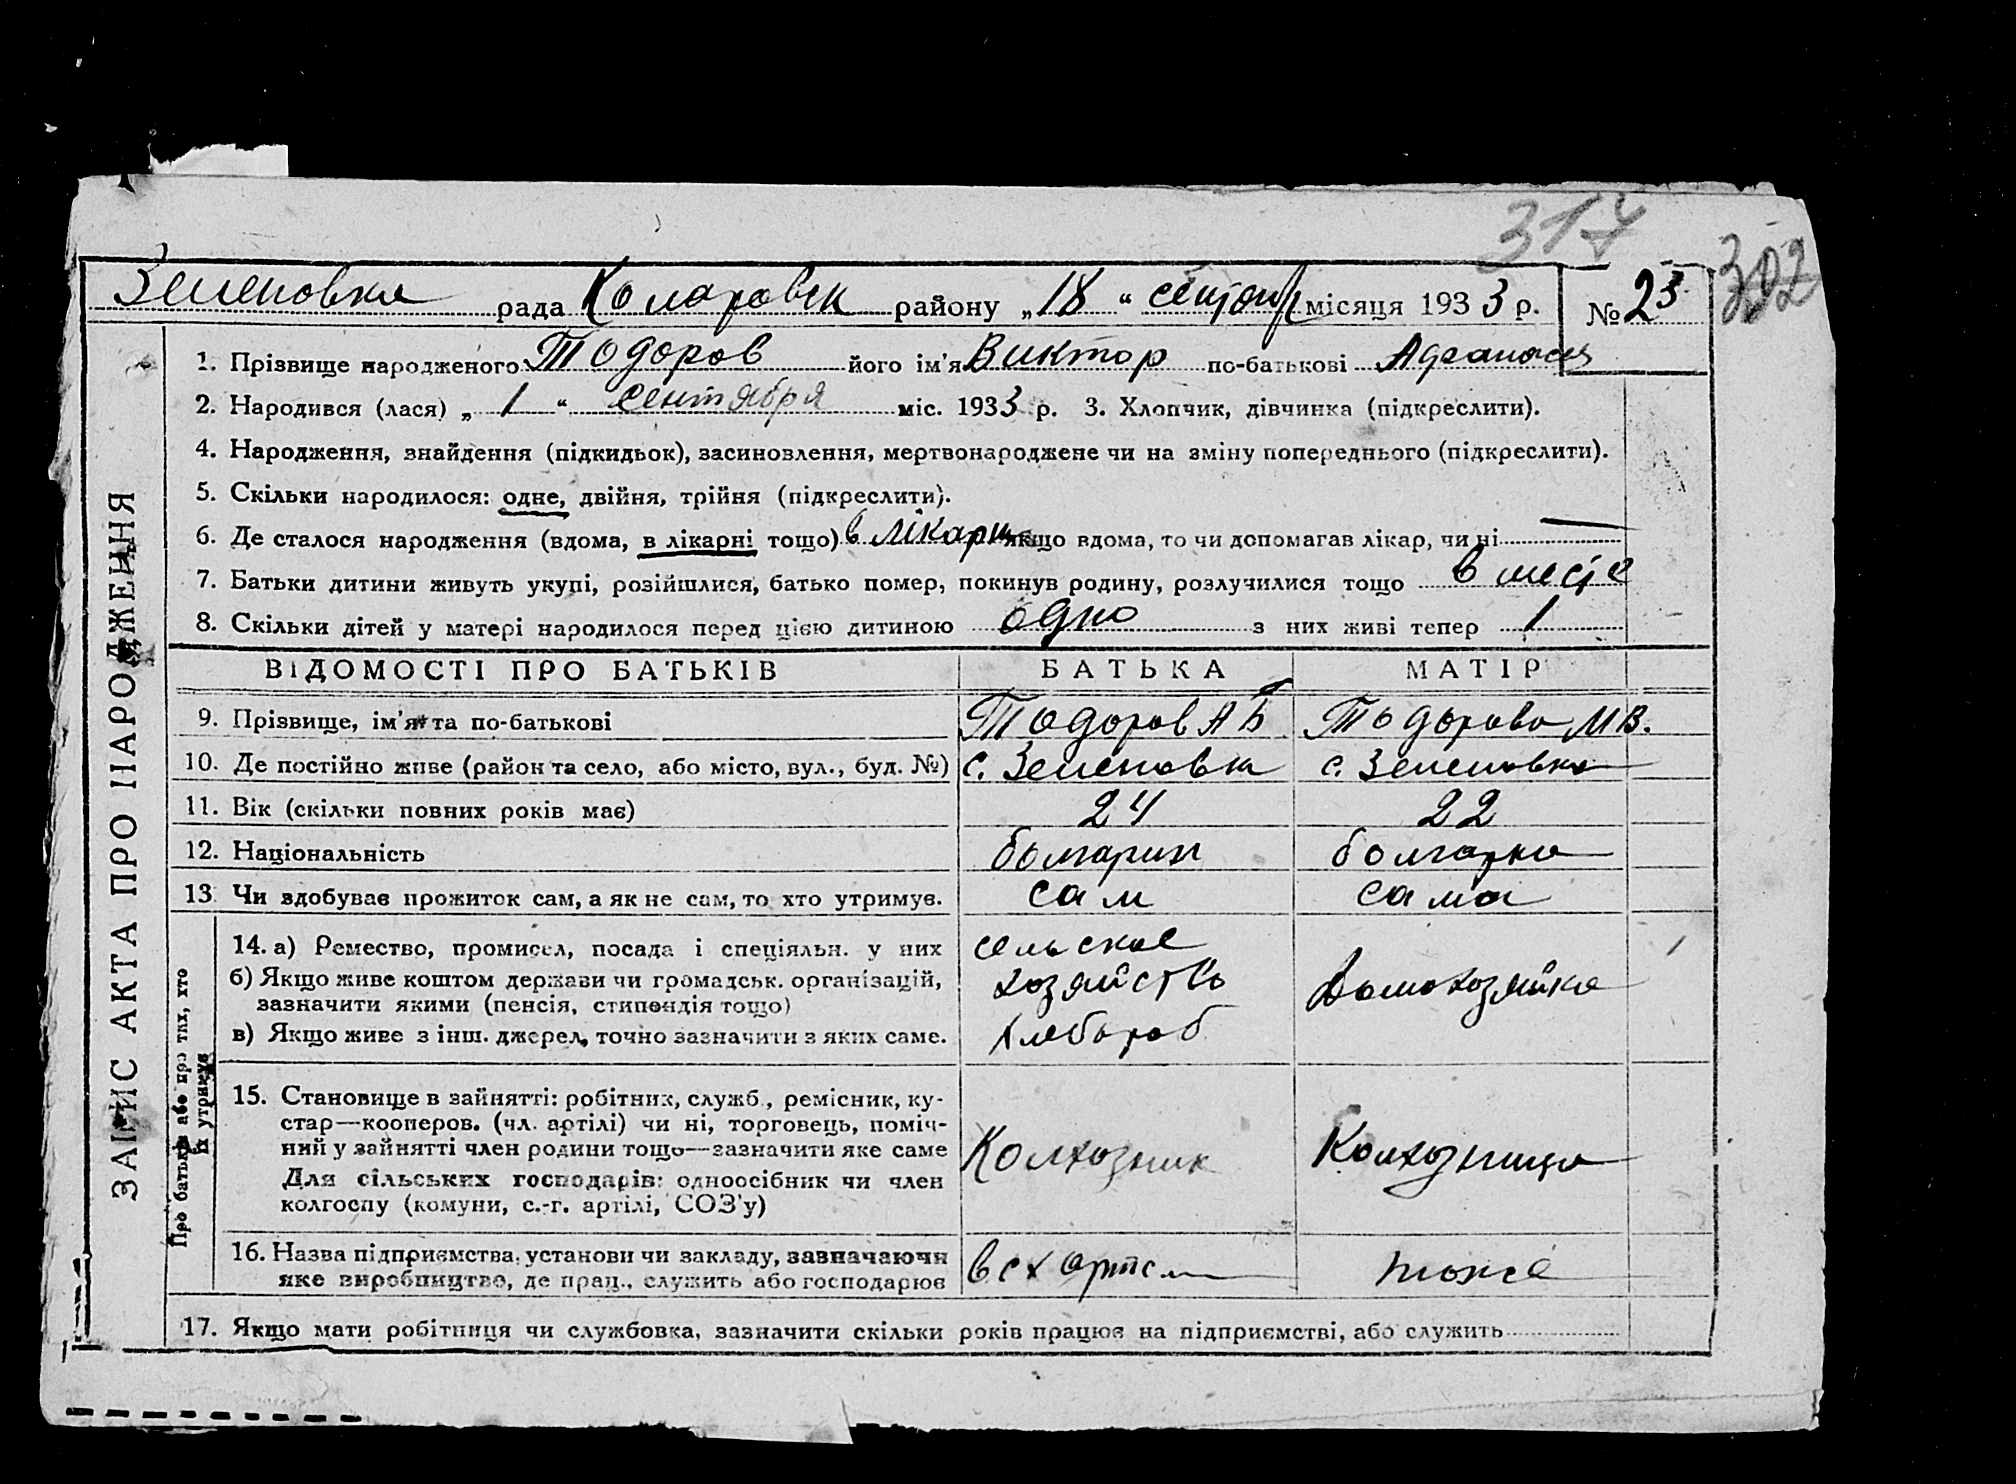 317
302
Зеленовка рада Коларовск району „18“ сентябр місяця 1933 р. № 23
1. Прізвище народженого Тодоров його ім'я Виктор по-батькові
2. Народився (лася) „1“ сентября міс. 1933 р. 3. Хлопчик, дівчинка (підкреслити).
4. Народження, знайдення (підкидьок), засиновлення, мертвонароджене чи на зміну попереднього (підкреслити).
5. Скільки народилося: одне, двійня, трійня (підкреслити).
6. Де сталося народження (вдома, в лікарні тощо) в лікарні якщо вдома, то чи допомагав лікар, чи ні —
7. Батьки дитини живуть укупі, розійшлися, батько помер, покинув родину, розлучилися тощо вместе
8. Скільки дітей у матері народилося перед цією дитиною одно з них живі тепер 1
ЗАПИС АКТА ПРО НАРОДЖЕННЯ
ВІДОМОСТІ ПРО БАТЬКІВ БАТЬКА МАТІР
9. Прізвище, ім'я та по-батькові Тодоров А Б Тодорова М В.
10. Де постійно живе (район та село, або місто, вул., буд. №) с. Зеленовка с. Зеленовка
11. Вік (скільки повних років має) 24 22
12. Національність болгарин болгарка
13. Чи здобуває прожиток сам, а як не сам, то хто утримує. сам сама
Про батьків або про тих, хто їх утримує
14. а) Ремество, промисел, посада і спеціяльн. у них сельское
б) Якщо живе коштом держави чи громадськ. організацій, хозяйство Домохозяйка
зазначити якими (пенсія, стипендія тощо)
в) Якщо живе з інш. джерел, точно зазначити з яких саме. хлебороб
15. Становище в зайнятті: робітник, служб., ремісник, ку-
стар—кооперов. (чл. артілі) чи ні, торговець, поміч-
ний у зайнятті член родини тощо—зазначити яке саме Колхозник Колхозница
Для сільських господарів: одноосібник чи член
колгоспу (комуни, с.-г. артілі, СОЗ'у)
16. Назва підприємства, установи чи закладу, зазначаючи в сх артел тоже
яке виробництво, де прац., служить або господарює
17. Якщо мати робітниця чи службовка, зазначити скільки років працює на підприємстві, або служить